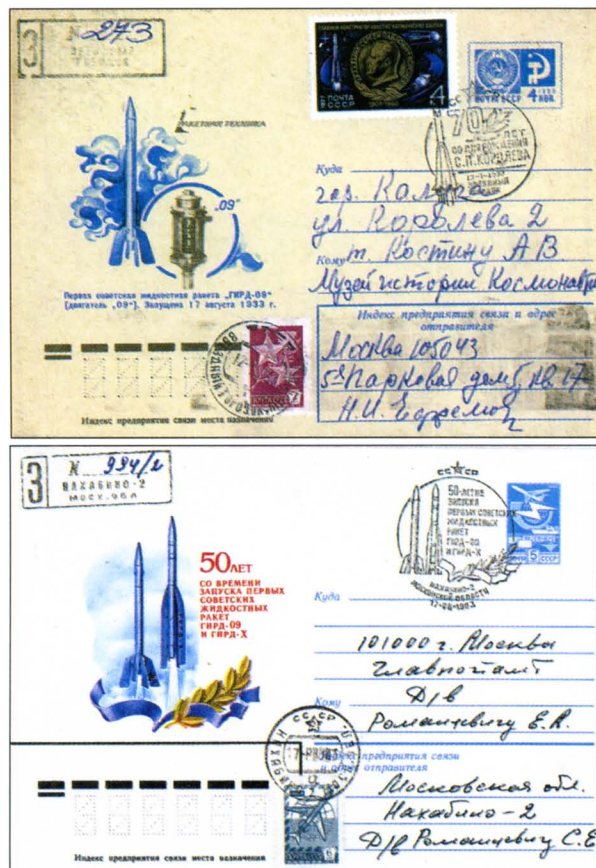 З
N 273
РАКЕТНАЯ ТЕХНИКА
„09"
Первая советская жидкостная ракета „ГИРД-09"
(двигатель „09"). Запущена 17 августа 1933 г.
ПОЧТА
СССР
4
ПОЧТА СССР
4 КОП.
СССР
70 ЛЕТ
СО ДНЯ РОЖДЕНИЯ
С.П. КОРОЛЕВА
Куда
гор. Калуга
ул. Королева 2
Кому
т. Костину А В.
Музей истории Космонавтики
Индекс предприятия связи и адрес
отправителя
Москва 105043
5я Парковая дом кв. 17
Н.И.
Индекс предприятия связи места назначения
З
N 994/2
НАХАБИНО-2
МОСК. ОБЛ
50 ЛЕТ
СО ВРЕМЕНИ
ЗАПУСКА ПЕРВЫХ
СОВЕТСКИХ
ЖИДКОСТНЫХ
РАКЕТ
ГИРД-09
И ГИРД-Х
СССР
50-ЛЕТИЕ
ЗАПУСКА
ПЕРВЫХ СОВЕТСКИХ
ЖИДКОСТНЫХ
РАКЕТ
ГИРД-09
И ГИРД-Х
НАХАБИНО-2
МОСКОВСКОЙ ОБЛАСТИ
5
Куда
101000 г. Москва
Главпочтамт
Д/в
Кому
Романцевичу Е.А.
Индекс предприятия связи
и адрес отправителя
Московская обл.
Нахабино-2
Д/в Романцевичу С.Е
СССР
Индекс предприятия связи места назначения